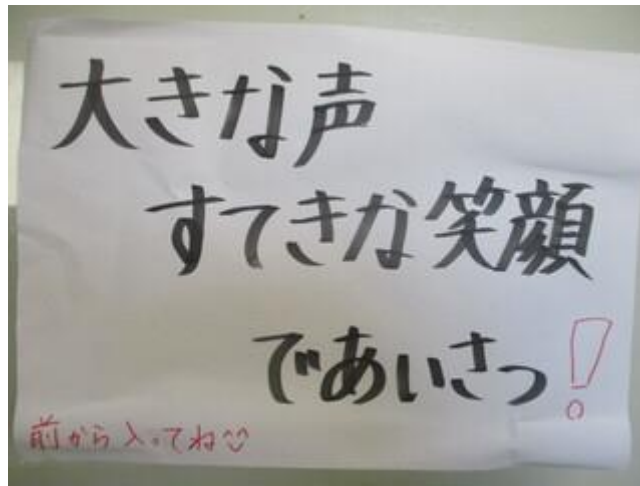 大きな声
すてきな笑顔
であいさつ!
前から入ってね